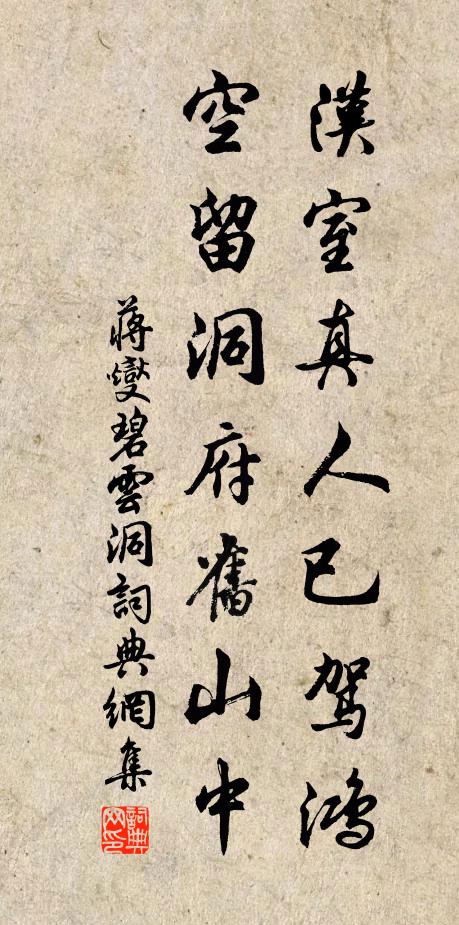 漢室真人已駕鴻
空留洞府舊山中
蔣燮碧雲洞詞典網集
詞典網印